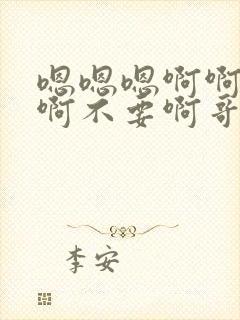 嗯嗯嗯啊啊
啊不要啊哥
李安